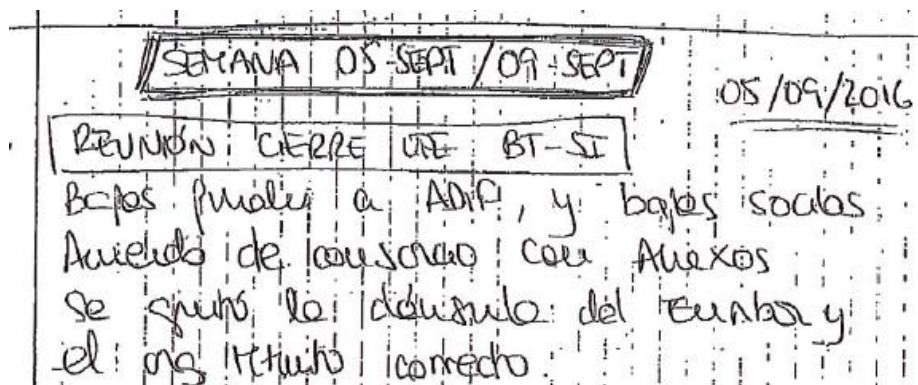 SEMANA 05-SEPT / 09-SEPT
05/09/2016
REUNIÓN CIERRE UTE BT-SI
Bajas finales a ADIF, y bajas socios
Acuerdo de consorcio con Anexos
Se quitó la cláusula del Euribor y
el correcto.